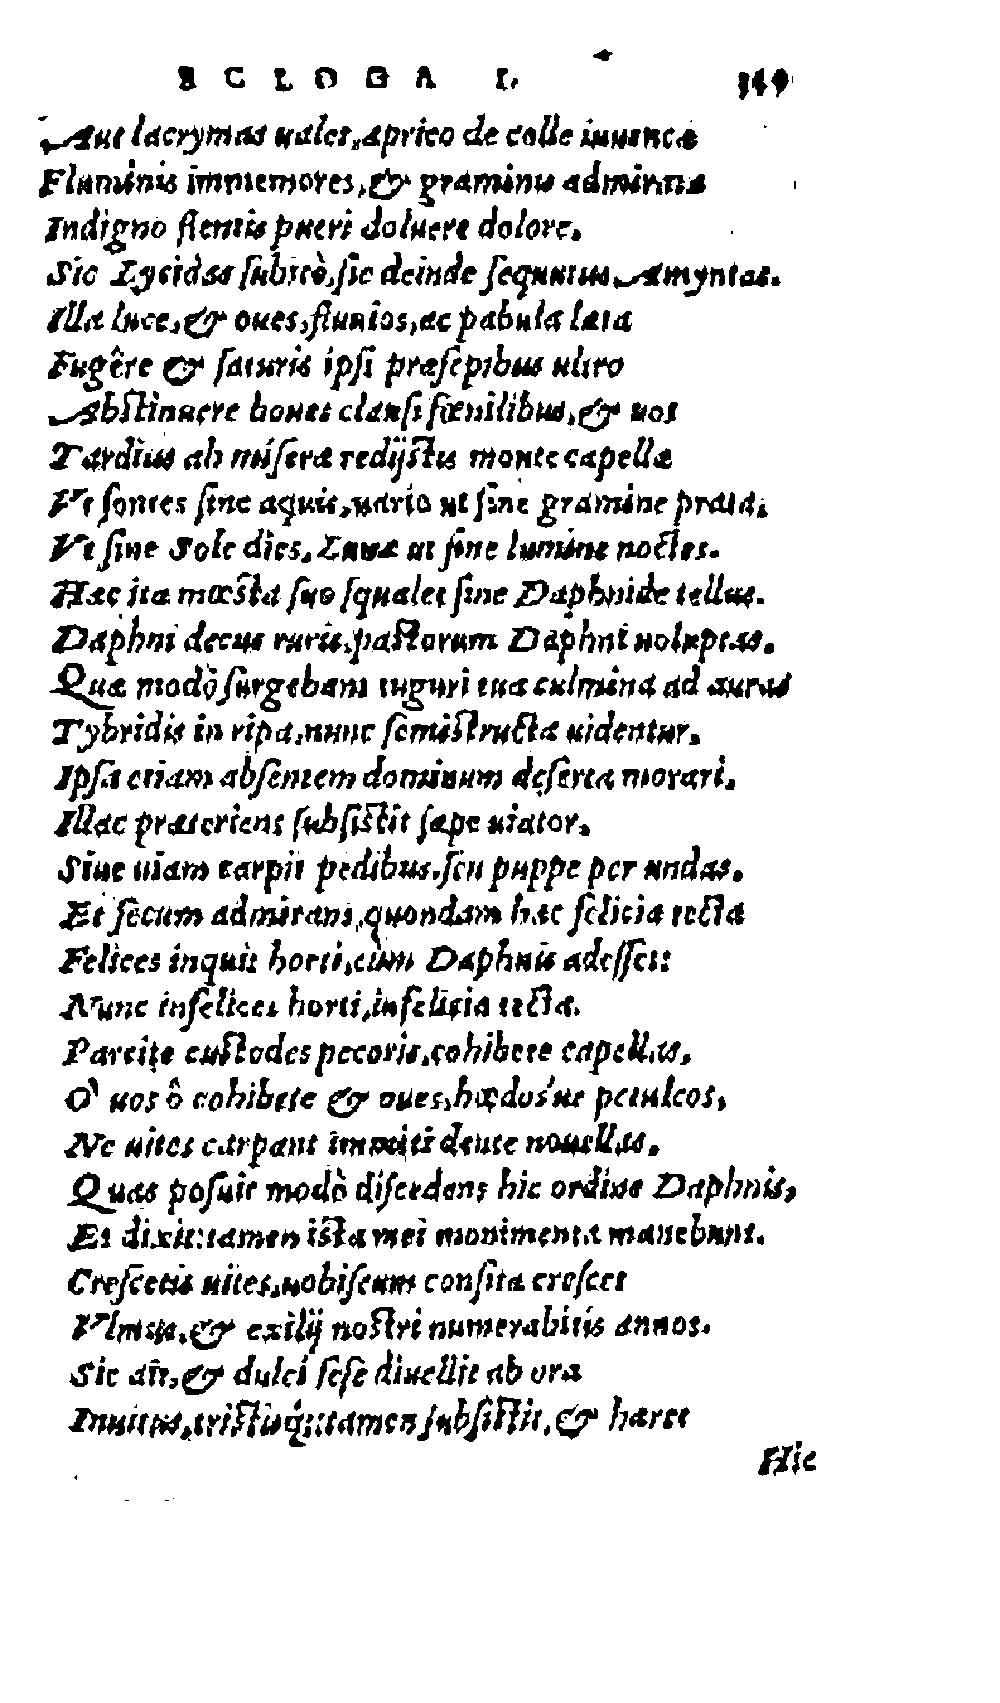 ECLOGA I. 149
Aut lacrymas ualet, aprico de colle iuuencæ
Fluminis immemores, & graminis admiratæ
Indigno flentis pueri doluere dolore.
Sic Lycidas subitò, sic deinde sequutus Amyntas.
Illa luce, & oues, fluuios, ac pabula læta
Fugêre & saturis ipsi præsepibus ultro
Abstinuere boues clausi fœnilibus, & uos
Tardius ab misera redijstis monte capellæ
Vt fontes sine aquis, uario ut sine gramine prata,
Vt sine Sole dies, Lunæ ut sine lumine noctes.
Hæc ita mœsta suo squalet sine Daphnide tellus.
Daphni decus ruris, pastorum Daphni uoluptas.
Quæ modò surgebant tuguri tua culmina ad auras
Tybridis in ripa, nunc semistructa uidentur.
Ipsa etiam absentem dominum deserta morari.
Illac præteriens subsistit sæpe uiator.
Siue uiam carpit pedibus, seu puppe per undas.
Et secum admirans, quondam hæc felicia tecta
Felices inquit horti, cùm Daphnis adesset:
Nunc infelices horti, infelicia tecta.
Parcite custodes pecoris, cohibete capellas,
O' uos ô cohibete & oues, hædos'ue petulcos,
Ne uites carpant immiti dente nouellas.
Quas posuit modò discedens hic ordine Daphnis,
Et dixit: tamen ista mei monimenta manebunt.
Crescetis uites, uobiscum consita crescet
Vlmus, & exilij nostri numerabitis annos.
Sic ait, & dulci sese diuellit ab ora
Inuitus, tristisq́; tamen subsistit, & hæret
Hic